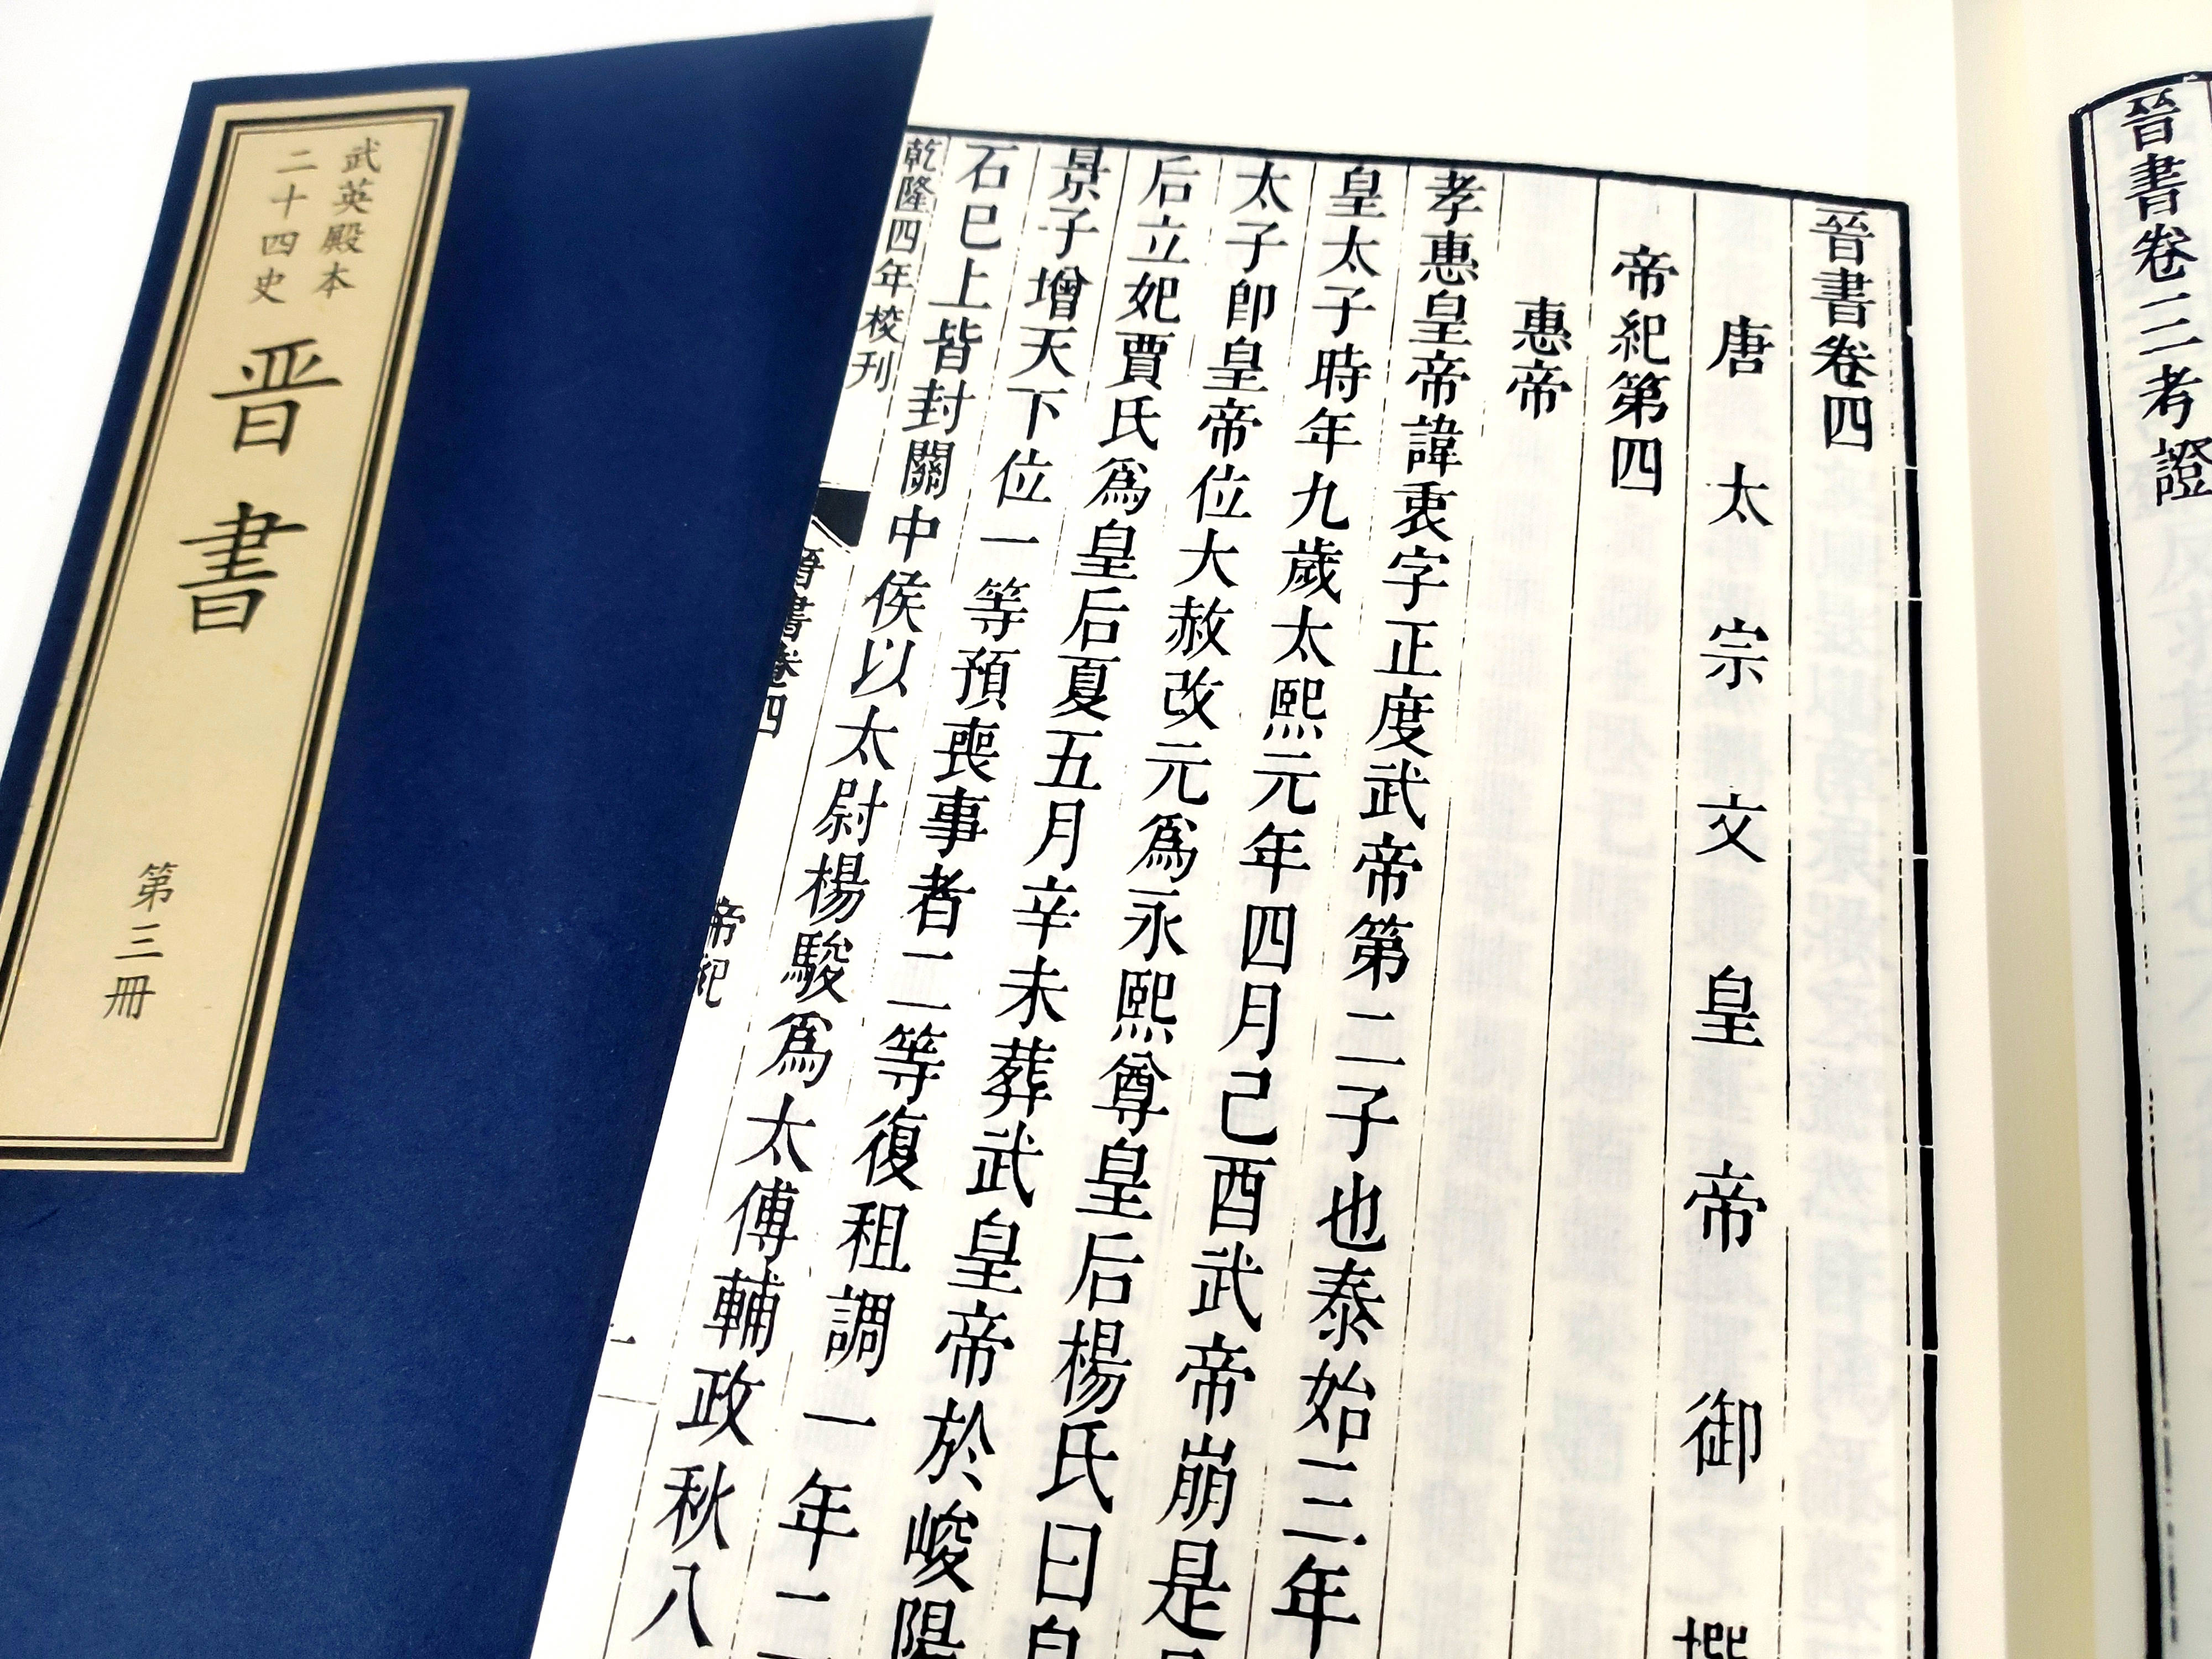 晉書卷三考證
晉書卷四
唐太宗文皇帝御撰
帝紀第四
惠帝
孝惠皇帝諱衷字正度武帝第二子也泰始三年
皇太子時年九歲太熙元年四月己酉武帝崩是
太子卽皇帝位大赦改元爲永熙尊皇后楊氏曰皇
后立妃賈氏爲皇后夏五月辛未葬武皇帝於峻陽
景子增天下位一等預喪事者二等復租調一年二
石巳上皆封關中侯以太尉楊駿爲太傅輔政秋八
乾隆四年校刊
晉書卷四
帝紀
一
武英殿本
二十四史
晋書
第三冊